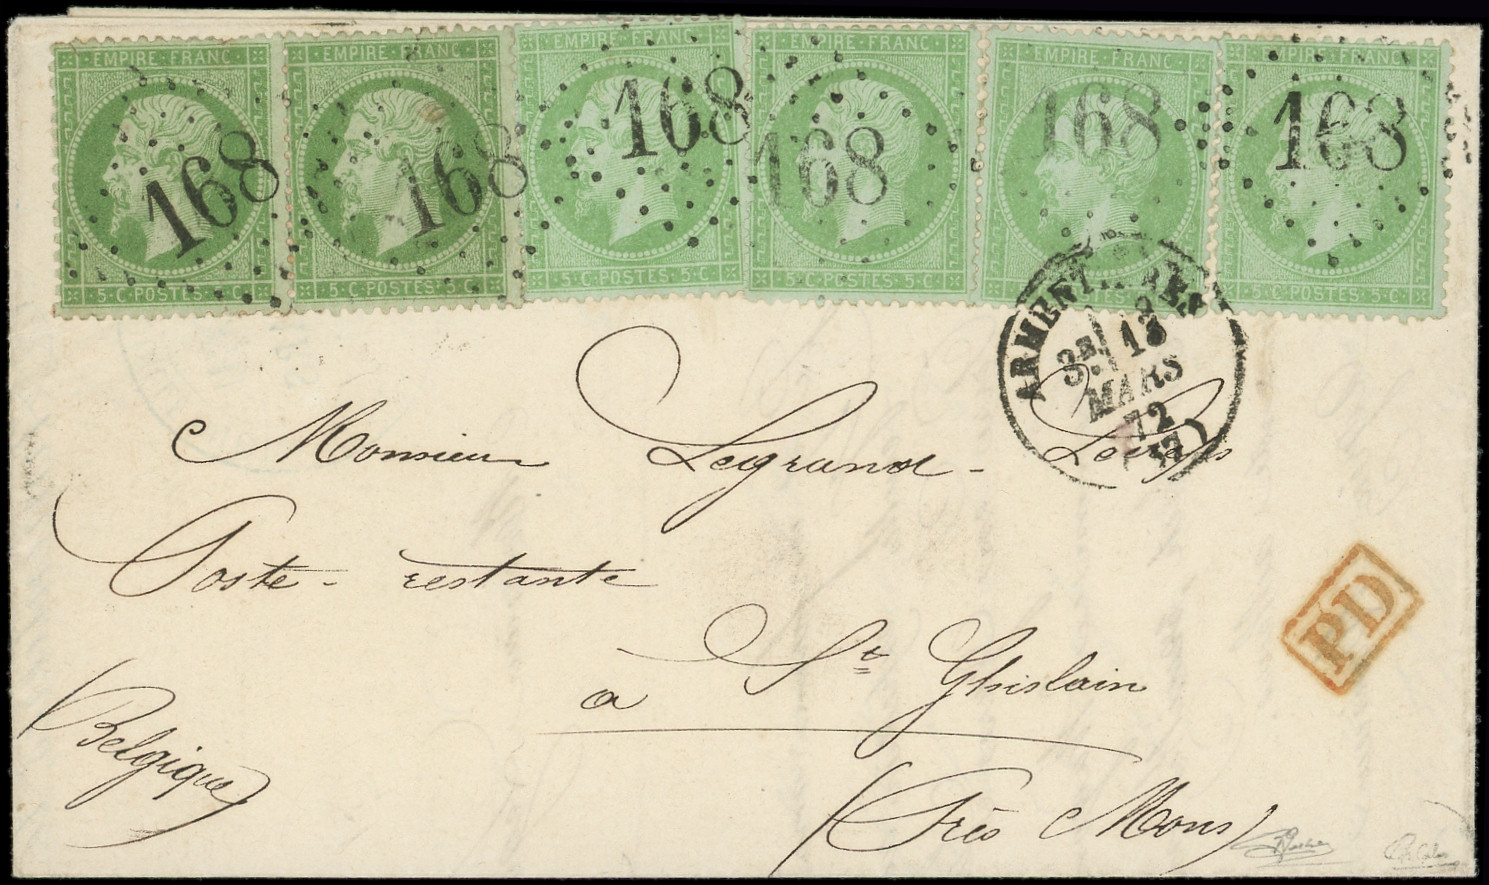 EMPIRE·FRANC· EMPIRE·FRANC· EMPIRE·FRANC· EMPIRE·FRANC· EMPIRE·FRANC· EMPIRE·FRANC·
168 168 168 168 168 168
5·C·POSTES· ·C· 5·C·POSTES·5·C· 5·C·POSTES·5·C· 5·C·POSTES·5·C· 5·C·POSTES·5·C· 5·C·POSTES·5·C·
3E 13
MARS
72
Monsieur Legrand-
Poste-restante
à St Ghislain
(Près Mons)
(Belgique)
PD